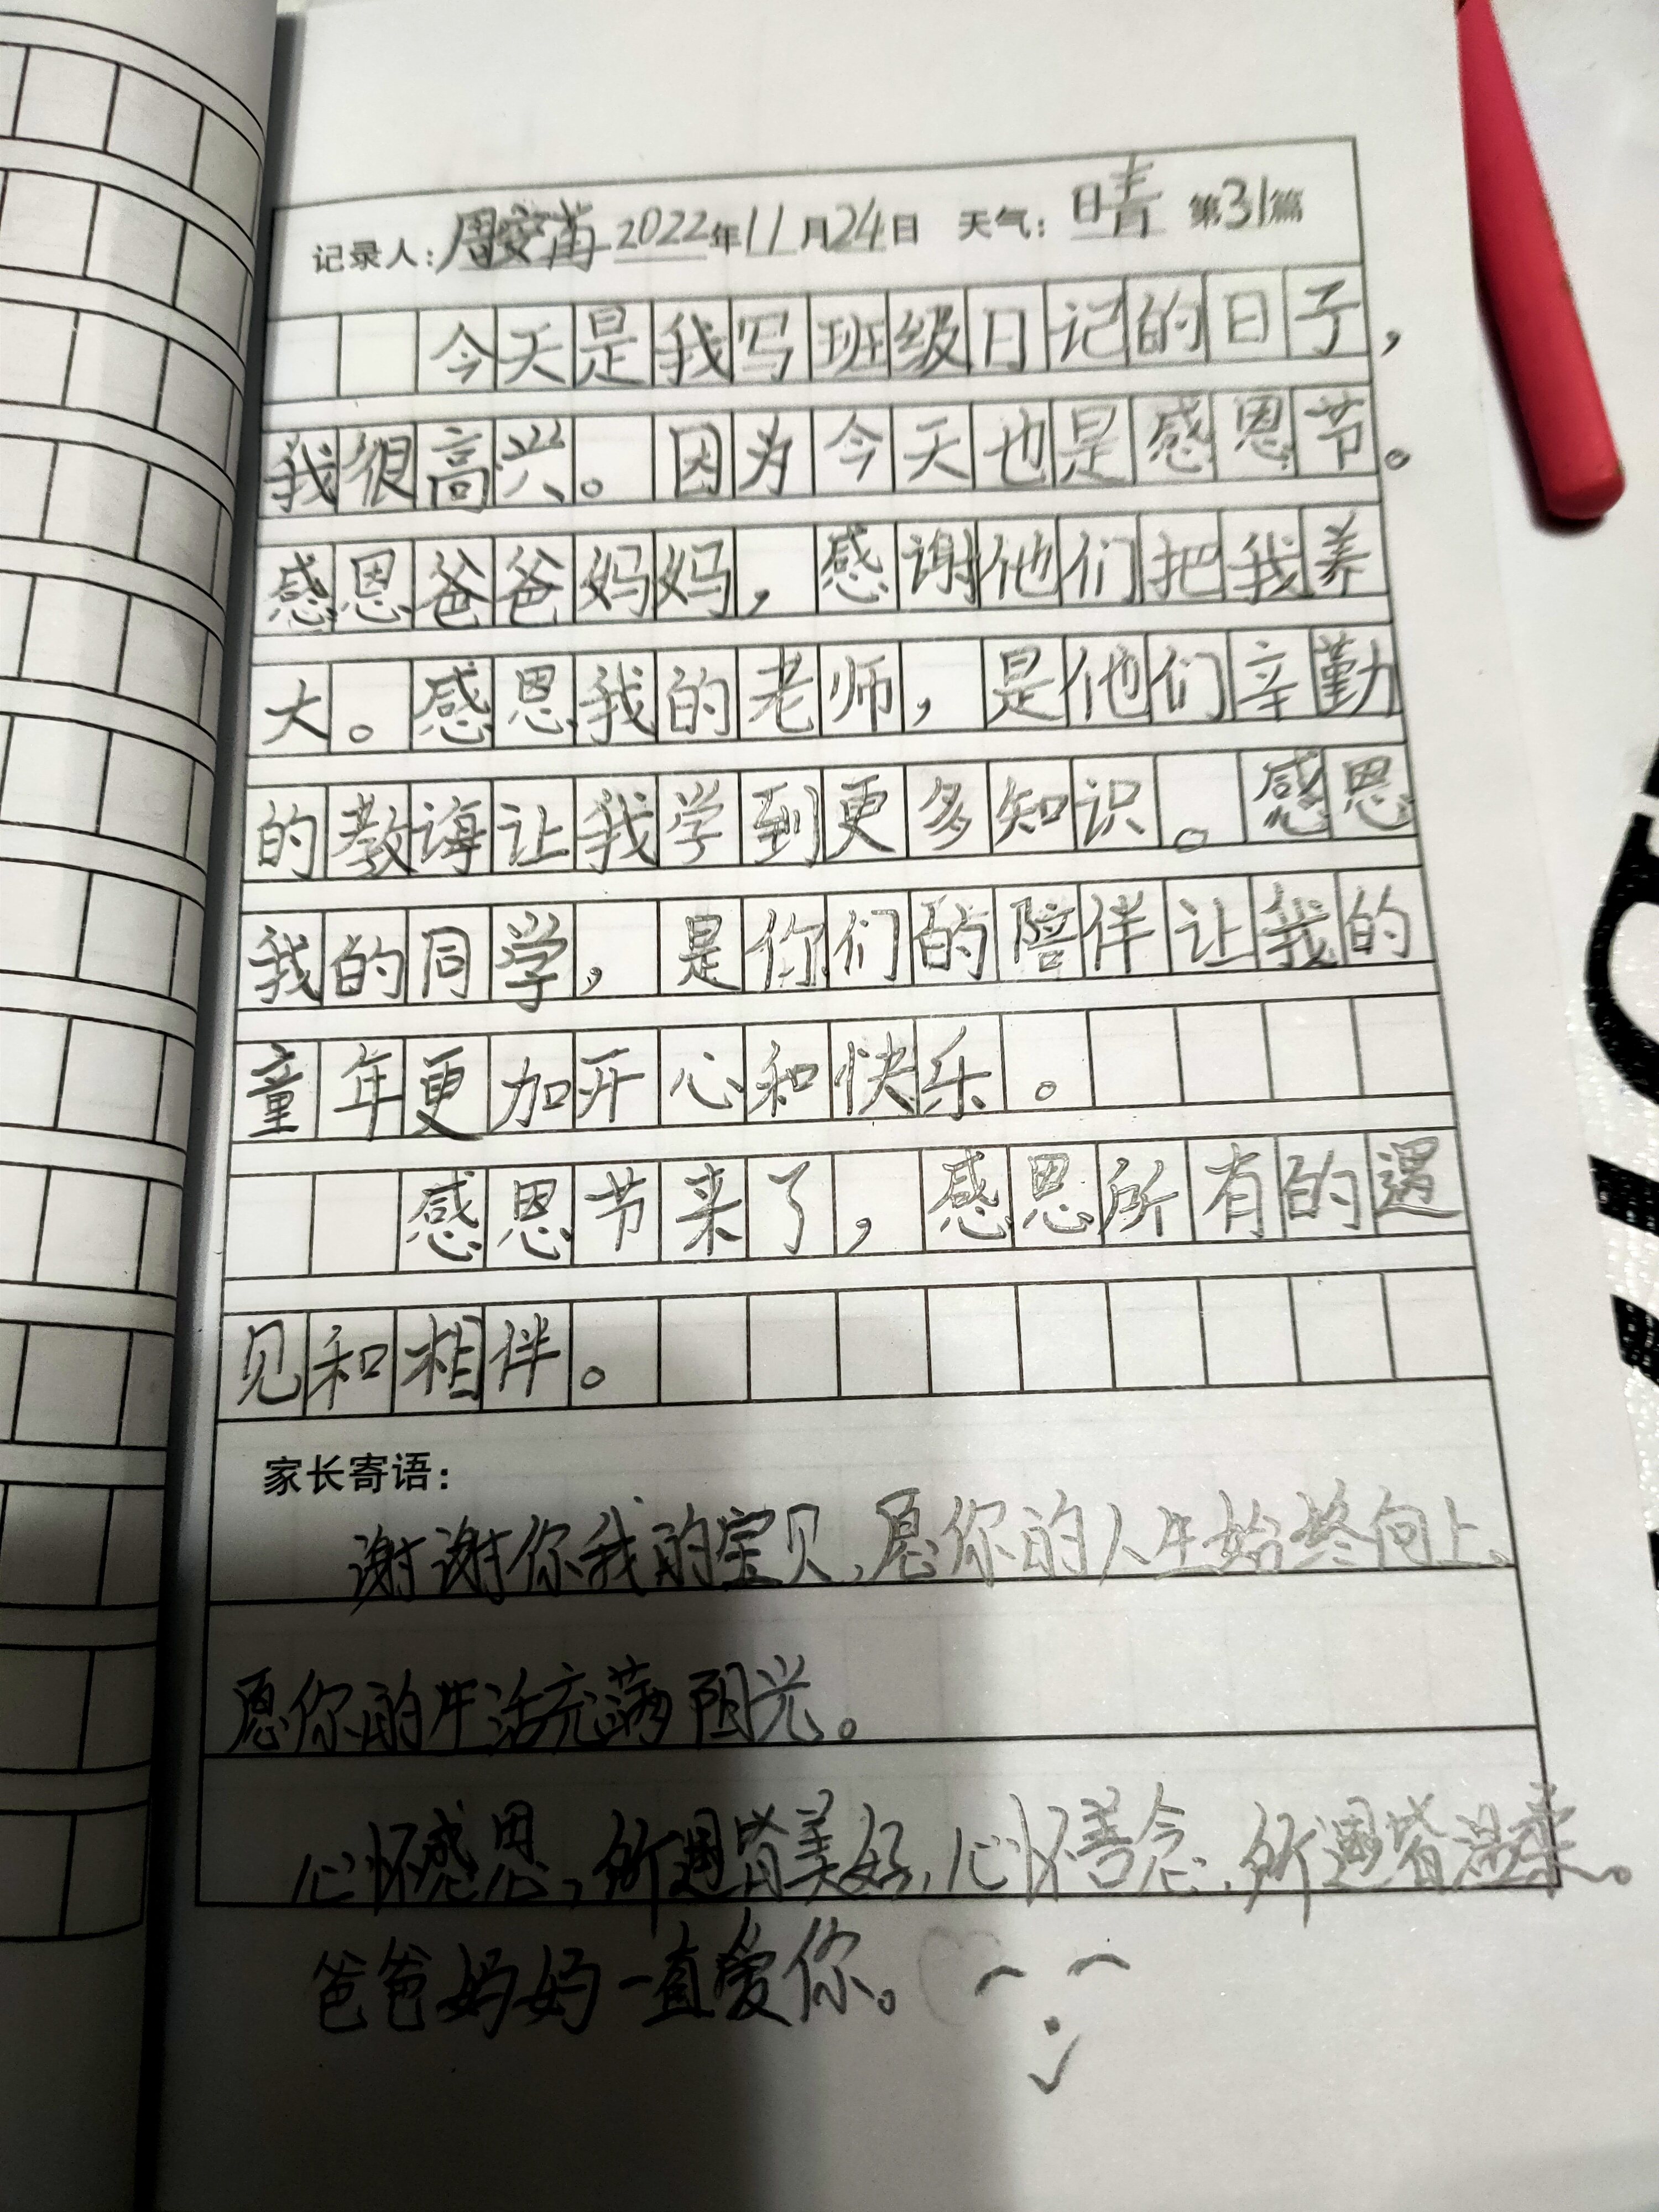 记录人：周 2022年11月24日 天气：晴 第31篇
今天是我写班级日记的日子，
我很高兴。因为今天也是感恩节。
感恩爸爸妈妈，感谢他们把我养
大。感恩我的老师，是他们辛勤
的教诲让我学到更多知识。感恩
我的同学，是你们的陪伴让我的
童年更加开心和快乐。
感恩节来了，感恩所有的遇
见和相伴。
家长寄语：
谢谢你我的宝贝，愿你的人生始终向上、
愿你的生活充满阳光。
心怀感恩，所遇皆美好，心怀善念，所遇皆温柔。
爸爸妈妈一直爱你。